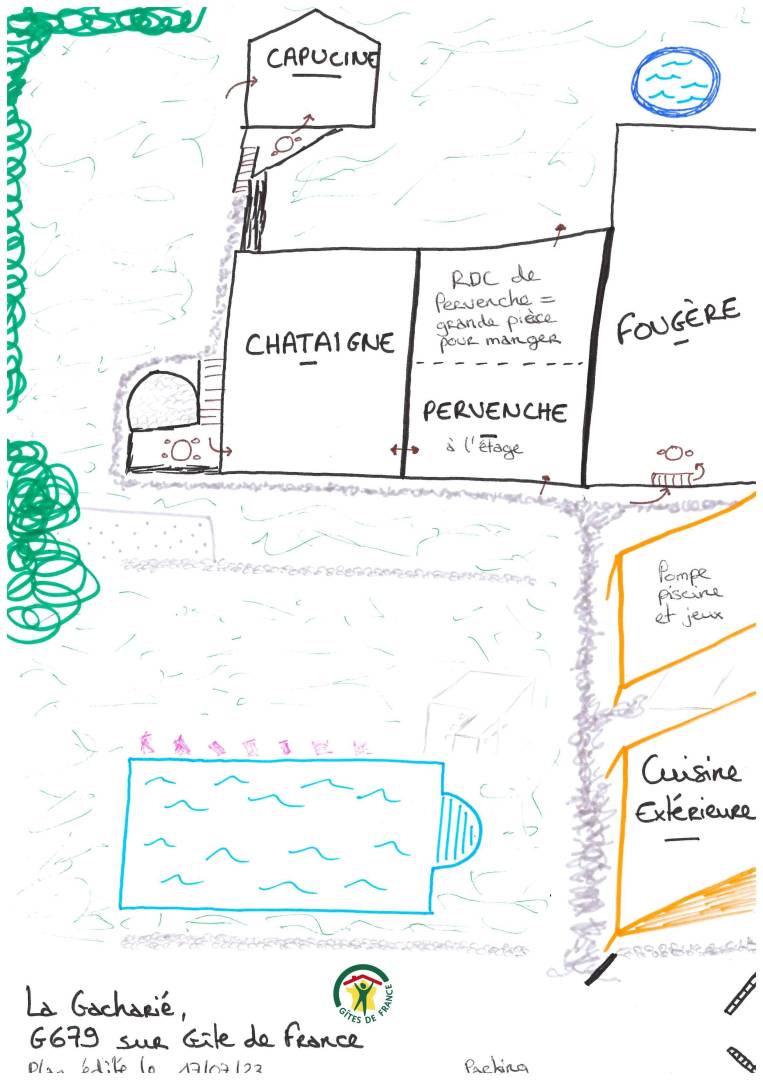 CAPUCINE
RDC de
Pervenche =
grande pièce
pour manger
FOUGÈRE
CHATAIGNE
PERVENCHE
à l'étage
Pompe
piscine
et jeux
Cuisine
Extérieure
GÎTES DE FRANCE
La Gacharié,
G679 sur Gîte de France
Plan édité le 17/07/23
Parking